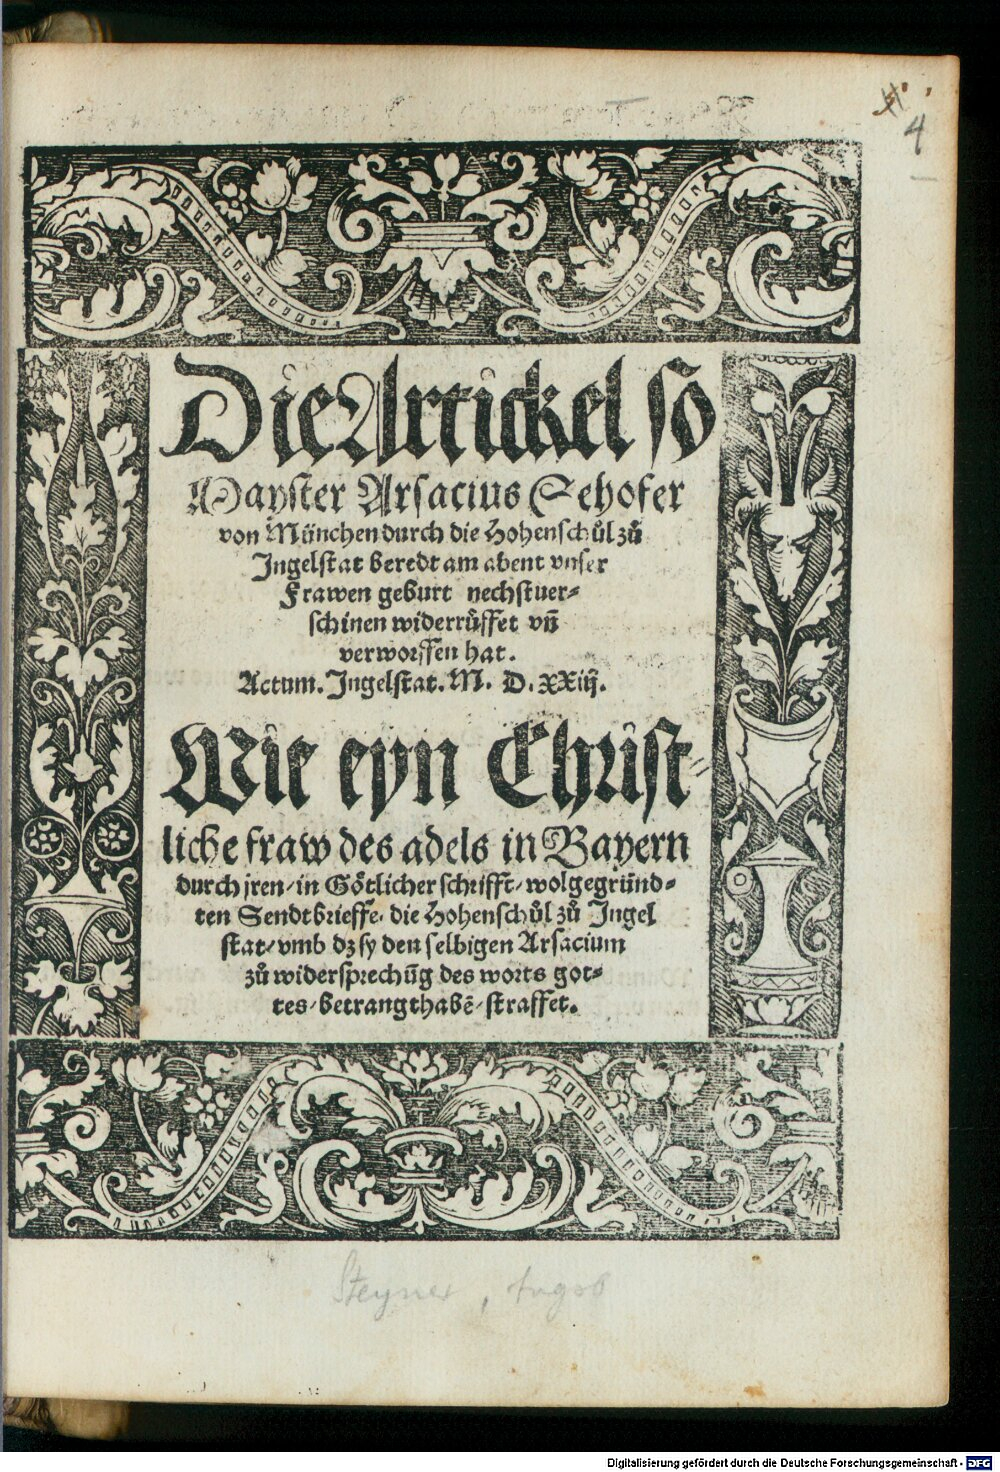 4
Die Artickel so
Mayster Arsacius Sehofer
von München durch die Hohenschůl zů
Jngelstat beredt am abent vnser
Frawen geburt nechstuer⸗
schinen widerrůffet vñ
verworffen hat.
Actum. Jngelstat. M. D. XXiij.
Wie eyn Christ⸗
liche fraw des adels in Bayern
durch jren/ in Gǒtlicher schrifft/ wolgegründ⸗
ten Sendtbrieffe/ die Hohenschůl zů Jngel
stat/ vmb dz sy den selbigen Arsacium
zů widersprechũg des worts got⸗
tes/ betrangt habẽ/ straffet.
Steyner, Augsb
Digitalisierung gefördert durch die Deutsche Forschungsgemeinschaft - DFG